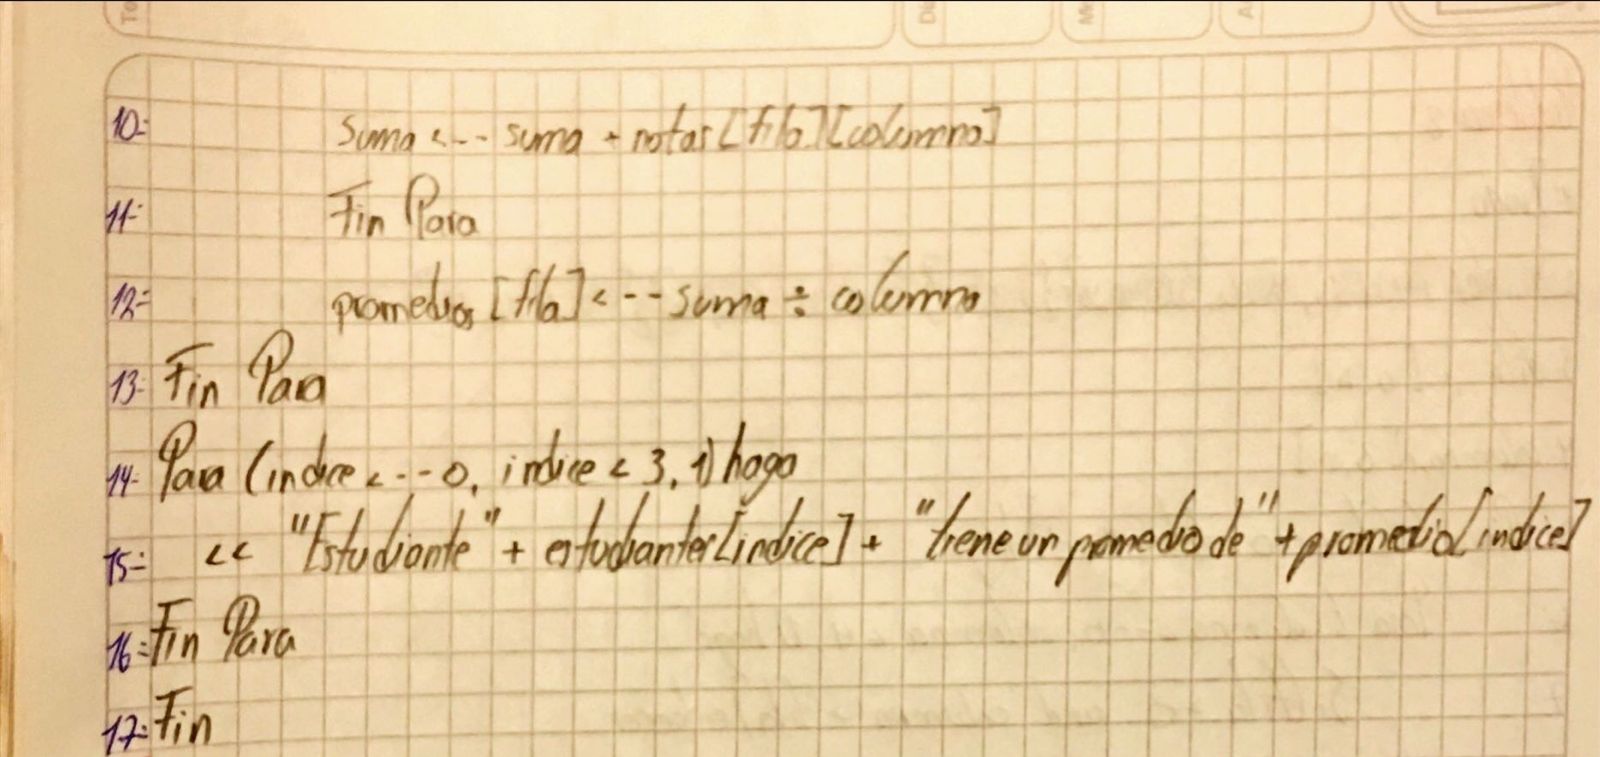 10- suma <--- suma + notas[fila][columna]
11- Fin Para
12- promedios [fila] <--- suma ÷ columna
13- Fin Para
14- Para (indice <--- 0, indice < 3, 1) haga
15- << "Estudiante" + estudiantes[indice] + "tiene un promedio de" + promedio[indice]
16- Fin Para
17- Fin